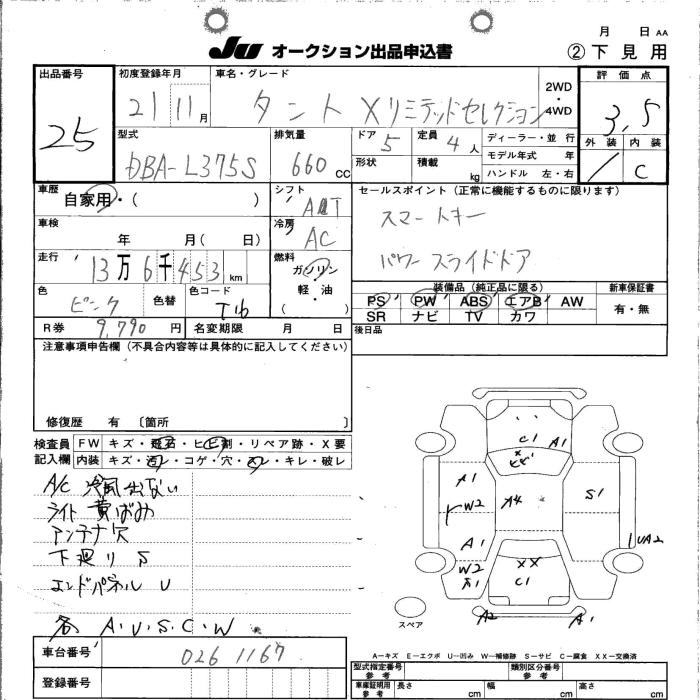 月 日 AA
JU オークション出品申込書 ②下見用
出品番号 初度登録年月 車名・グレード 評価点
25 21 11月 タント Xリミテッドセレクション 2WD・4WD 3.5
型式 排気量 ドア 5 定員 4人 ディーラー・並行 外装 内装
DBA-L375S 660cc 形状 積載 kg モデル年式 年 C
ハンドル 左・右
車歴 自家用・( ) シフト AT セールスポイント (正常に機能するものに限ります)
車検 年 月( 日) 冷房 AC スマートキー
走行 13万6千453km 燃料 ガソリン 軽・油 ( ) パワースライドドア
色 ピンク 色替 色コード T16 装備品 (純正品に限る) 新車保証書
PS PW ABS エアB AW 有・無
SR ナビ TV カワ
R券 9,790円 名変期限 月 日 後日品
注意事項申告欄 (不具合内容等は具体的に記入してください)
修復歴 有 〔箇所 〕
検査員 FW キズ・飛石・ヒビ割・リペア跡・X要
記入欄 内装 キズ・ ・コゲ・穴・ ・キレ・破レ
A/C 冷風出ない
ライト黄ばみ
アンテナ穴
下廻り S
エンドパネル U
各 A・U・S・C・W
C1 A1
A1 W2 A4 S1
A1 UA2
W2 A1 XX C1
A2 A1
スペア
A-キズ E-エクボ U-凹み W-補修跡 S-サビ C-腐食 XX-交換済
車台番号 0261167
型式指定番号 参考 類別区分番号 参考
登録番号 車庫証明用 参考 長さ cm 幅 cm 高さ cm